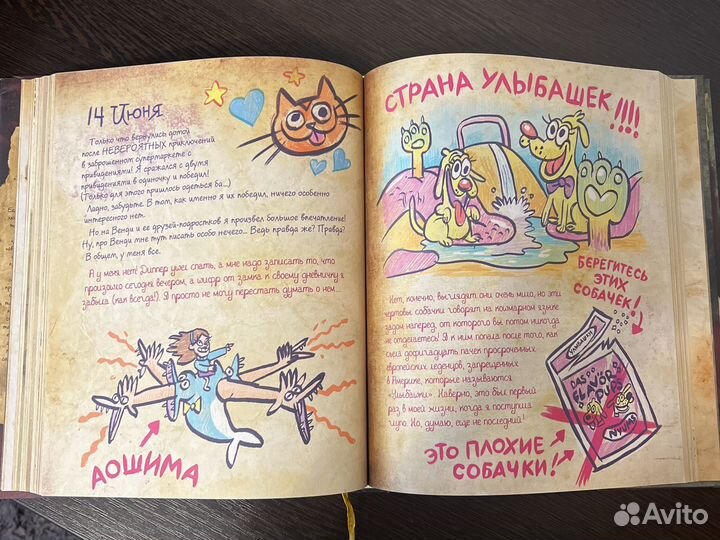 14 Июня
Только что вернулись домой
после НЕВЕРОЯТНЫХ приключений
в заброшенном супермаркете с
привидениями! Я сражался с двумя
привидениями в одиночку и победил!
(Только для этого пришлось одеться ба...)
Ладно, забудьте. В том, как именно я их победил, ничего особенно
интересного нет.
Но на Венди и ее друзей-подростков я произвел большое впечатление!
Ну, про Венди мне тут писать особо нечего... Ведь правда же? Правда?
В общем, у меня все.
А у меня нет! Диппер ушел спать, а мне надо записать то, что
произошло сегодня вечером, а шифр от замка к своему дневнику я
забыла (как всегда!). Я просто не могу перестать думать о нем...
АОШИМА
СТРАНА УЛЫБАШЕК!!!!
БЕРЕГИТЕСЬ
ЭТИХ
СОБАЧЕК!
Нет, конечно, выглядят они очень мило, но эти
чертовы собачки говорят на кошмарном языке
задом наперед, от которого вы потом никогда
не отделаетесь! Я к ним попала после того, как
съела одиннадцать пачек просроченных
европейских леденцов, запрещенных
в Америке, которые называются
«Улыбашки». Наверно, это был первый
раз в моей жизни, когда я поступила
глупо. Но, думаю, еще не последний!
DAS
FLAVOR
PUPS
NYUMS
ЭТО ПЛОХИЕ
СОБАЧКИ!
Avito